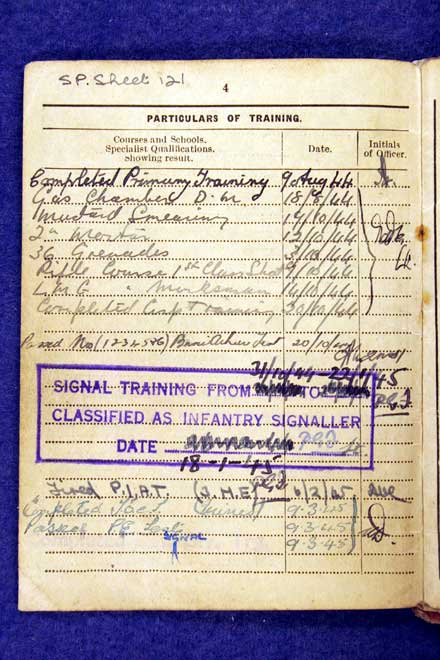 SP. Sheet 121
4
PARTICULARS OF TRAINING.
Courses and Schools. Specialist Qualifications. Showing result. Date. Initials of Officer.
Completed Primary Training 9 Aug 44
Gas Chamber 18/8/44
Mustard Smearing 14/10/44
2" Mortar 12/10/44
36 Grenades 3/10/44
Rifle Course 1st Class Shot 9/10/44
L.M.G. " Marksman 14/10/44
Completed Corps Training 30/10/44
Passed No (123456) Test 20/10/44
31/10/44 22/1/45
SIGNAL TRAINING FROM TO
CLASSIFIED AS INFANTRY SIGNALLER
DATE
18-1-45
Fired P.I.A.T. (H.E) 4/2/45
Completed 9.3.45
Passed P.E. Test 9.3.45
SIGNAL 9.3.45